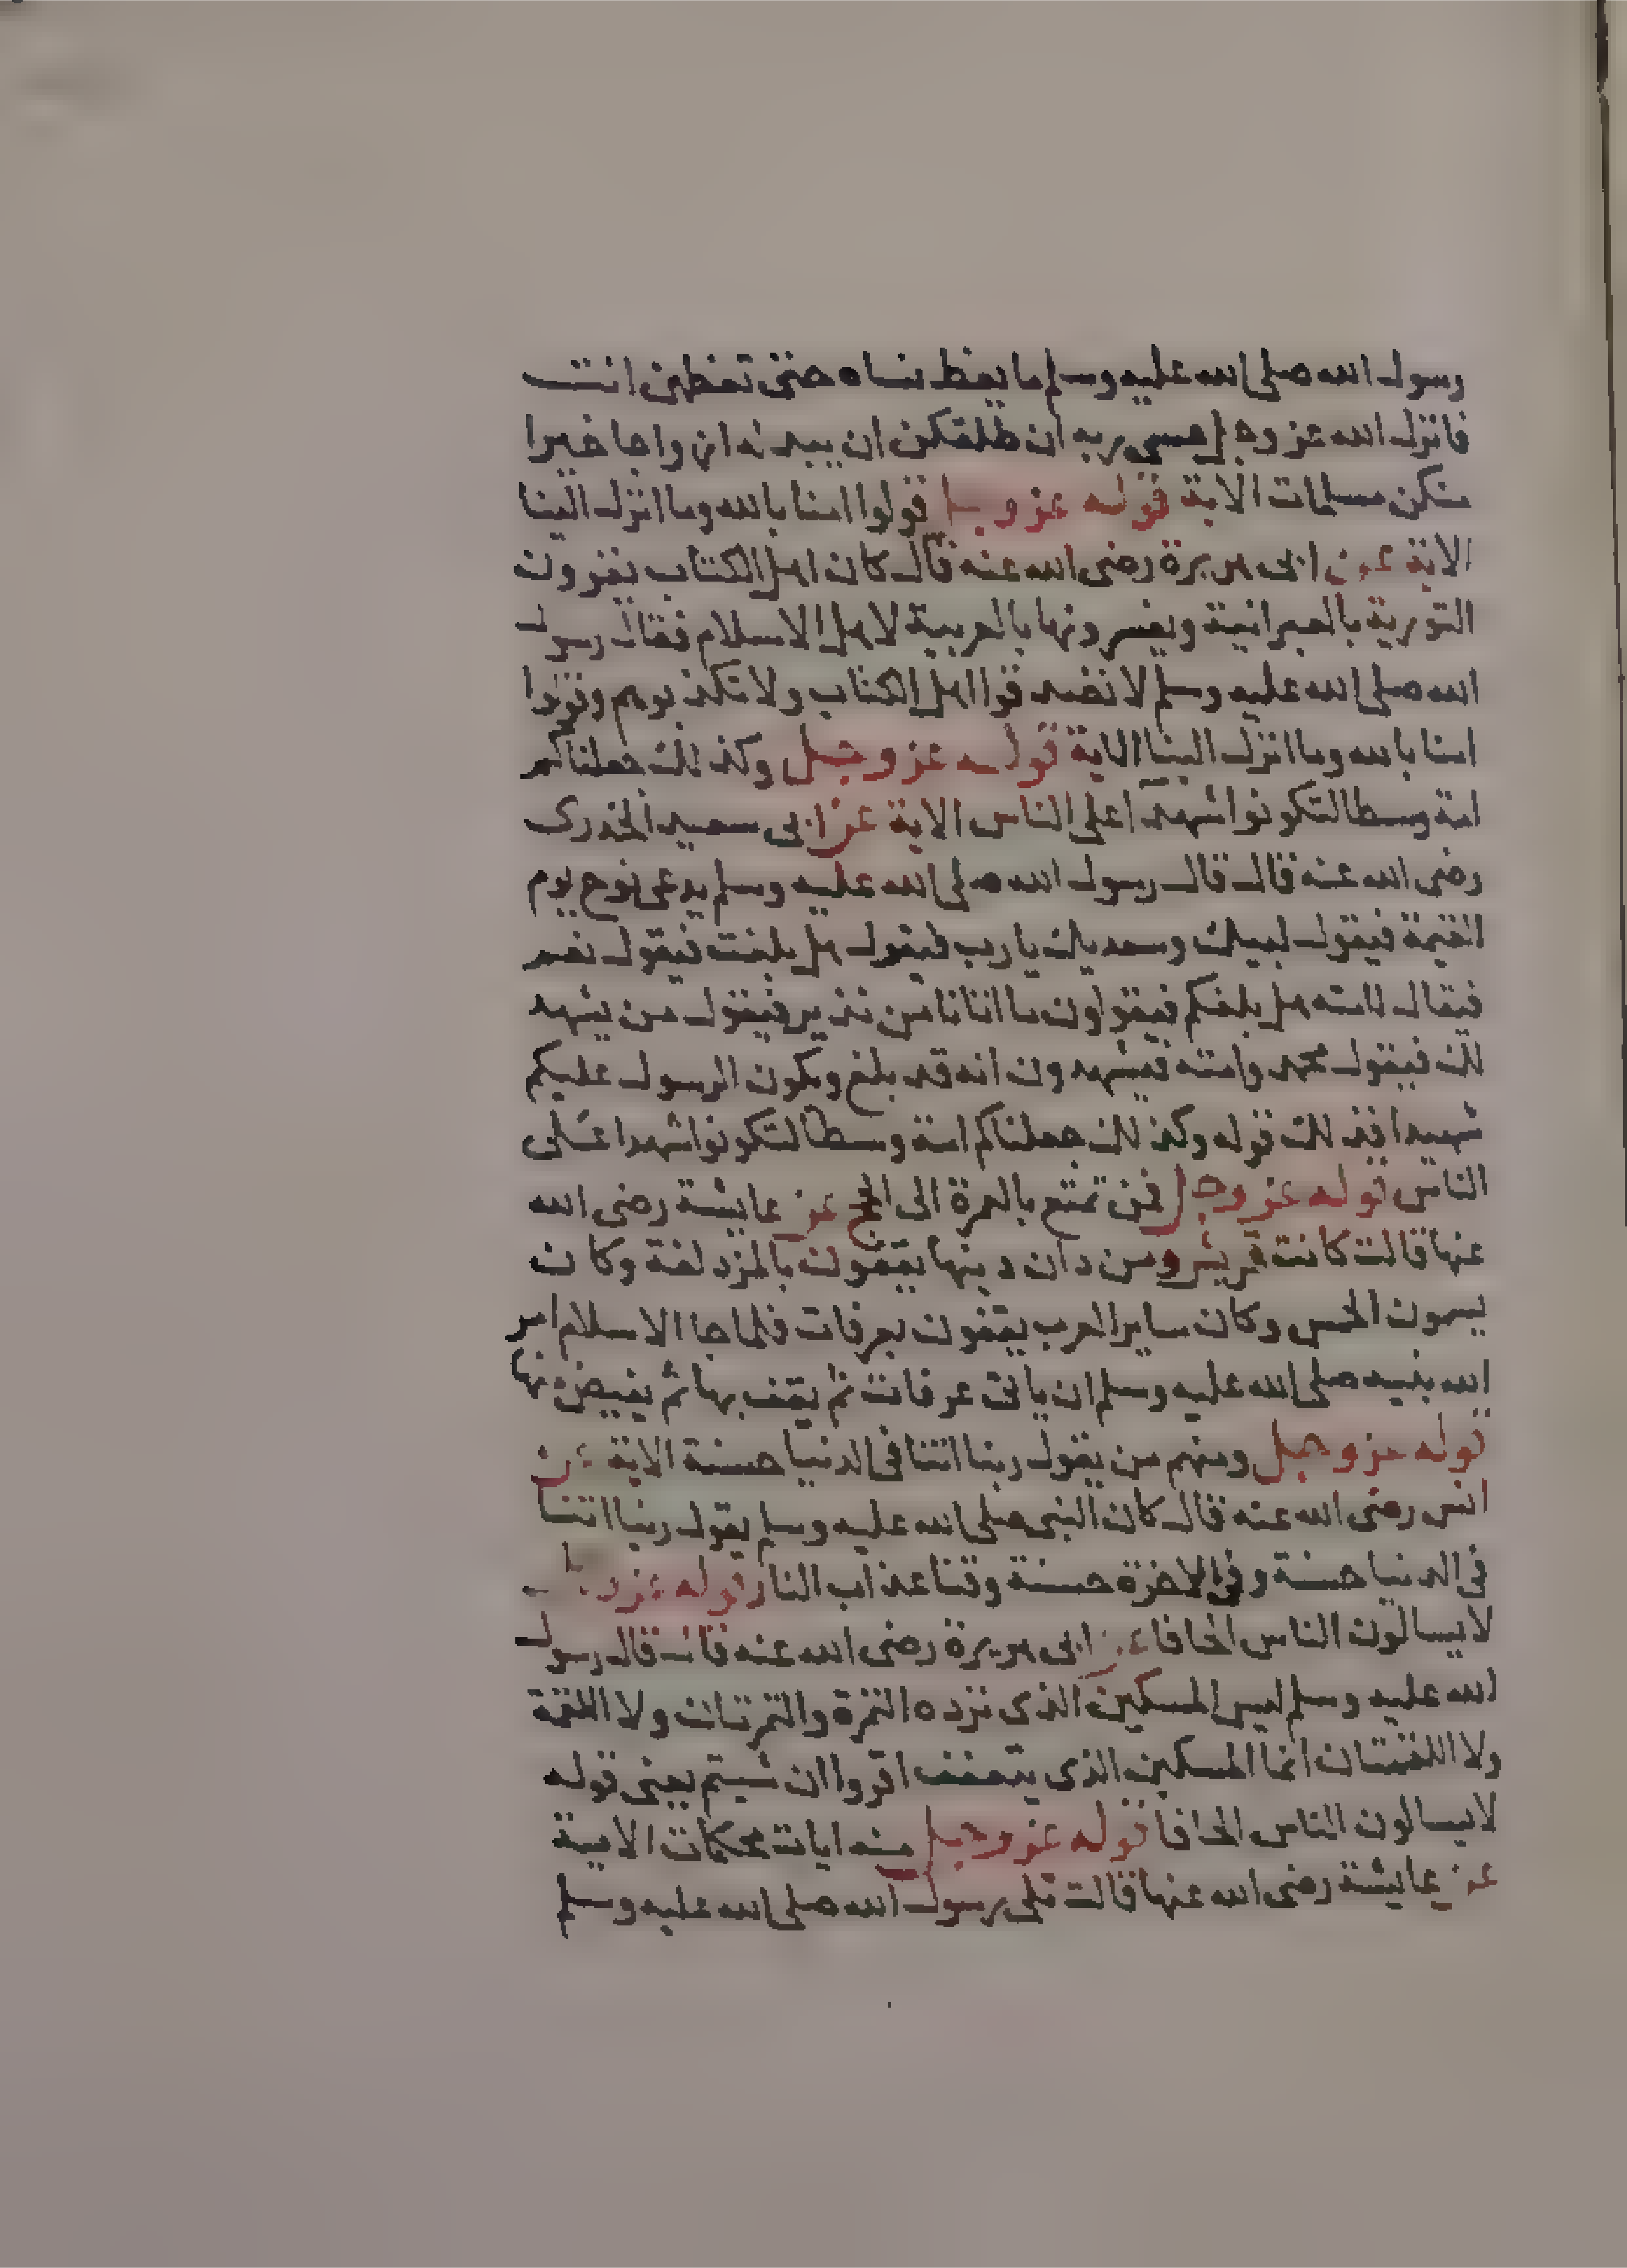 رسول الله صلى الله عليه وسلم ما يعظ نساه حتى تعظهن انت
فانزل الله عز وجل عسى ربه ان طلقكن ان يبدله ازواجا خيرا
منكن مسلمات الاية قوله عز وجل قولوا امنا بالله وما انزل الينا
الاية عن ابى هريرة رضى الله عنه قال كان اهل الكتاب يقرون
التورية بالعبرانية ويفسرونها بالعربية لاهل الاسلام فقال رسول
الله صلى الله عليه وسلم لا تصدقوا اهل الكتاب ولا تكذبوهم وقولوا
امنا بالله وما انزل الينا الاية قوله عز وجل وكذلك جعلناكم
امة وسطا لتكونوا شهدآ اعلى الناس الاية عن ابى سعيد الخدرى
رضى الله عنه قال قال رسول الله صلى الله عليه وسلم يدعى نوح يوم
القيمة فيقول لبيك وسعديك يا رب فيقول هل بلغت فيقول نعم
فيقال لامته هل بلغكم فيقولون ما اتانا من نذير فيقول من يشهد
لك فيقول محمد وامته فيشهدون انه قد بلغ ويكون الرسول عليكم
شهيدا فذلك قوله وكذلك جعلناكم امة وسطا لتكونوا شهدا على
الناس قوله عز وجل فمن تمتع بالعمرة الى الحج عن عايشة رضى الله
عنها قالت كانت قريش ومن دان دينها يقفون بالمزدلفة وكان
يسمون الحمس وكان ساير العرب يقفون بعرفات فلما جا الاسلام امر
الله بنيه صلى الله عليه وسلم ان ياتى عرفات ثم يقف بها ثم يفيض منها
قوله عز وجل ومنهم من يقول ربنا اتنا فى الدنيا حسنة الاية عن
انس رضى الله عنه قال كان النبى صلى الله عليه وسلم يقول ربنا اتنا
فى الدنيا حسنة وفى الاخرة حسنة وقنا عذاب النار قوله عز وجل
لا يسالون الناس الحافا عن ابى هريرة رضى الله عنه قال قال رسول
الله عليه وسلم ليس المسكين الذى ترده التمرة والتمرتان ولا اللقمة
ولا اللقمتان انما المسكين الذى يتعفف اقروا ان شيتم يعنى قوله
لا يسالون الناس الحافا قوله عز وجل منه ايات محكمات الاية
عن عايشة رضى الله عنها قالت تلى رسول الله صلى الله عليه وسلم